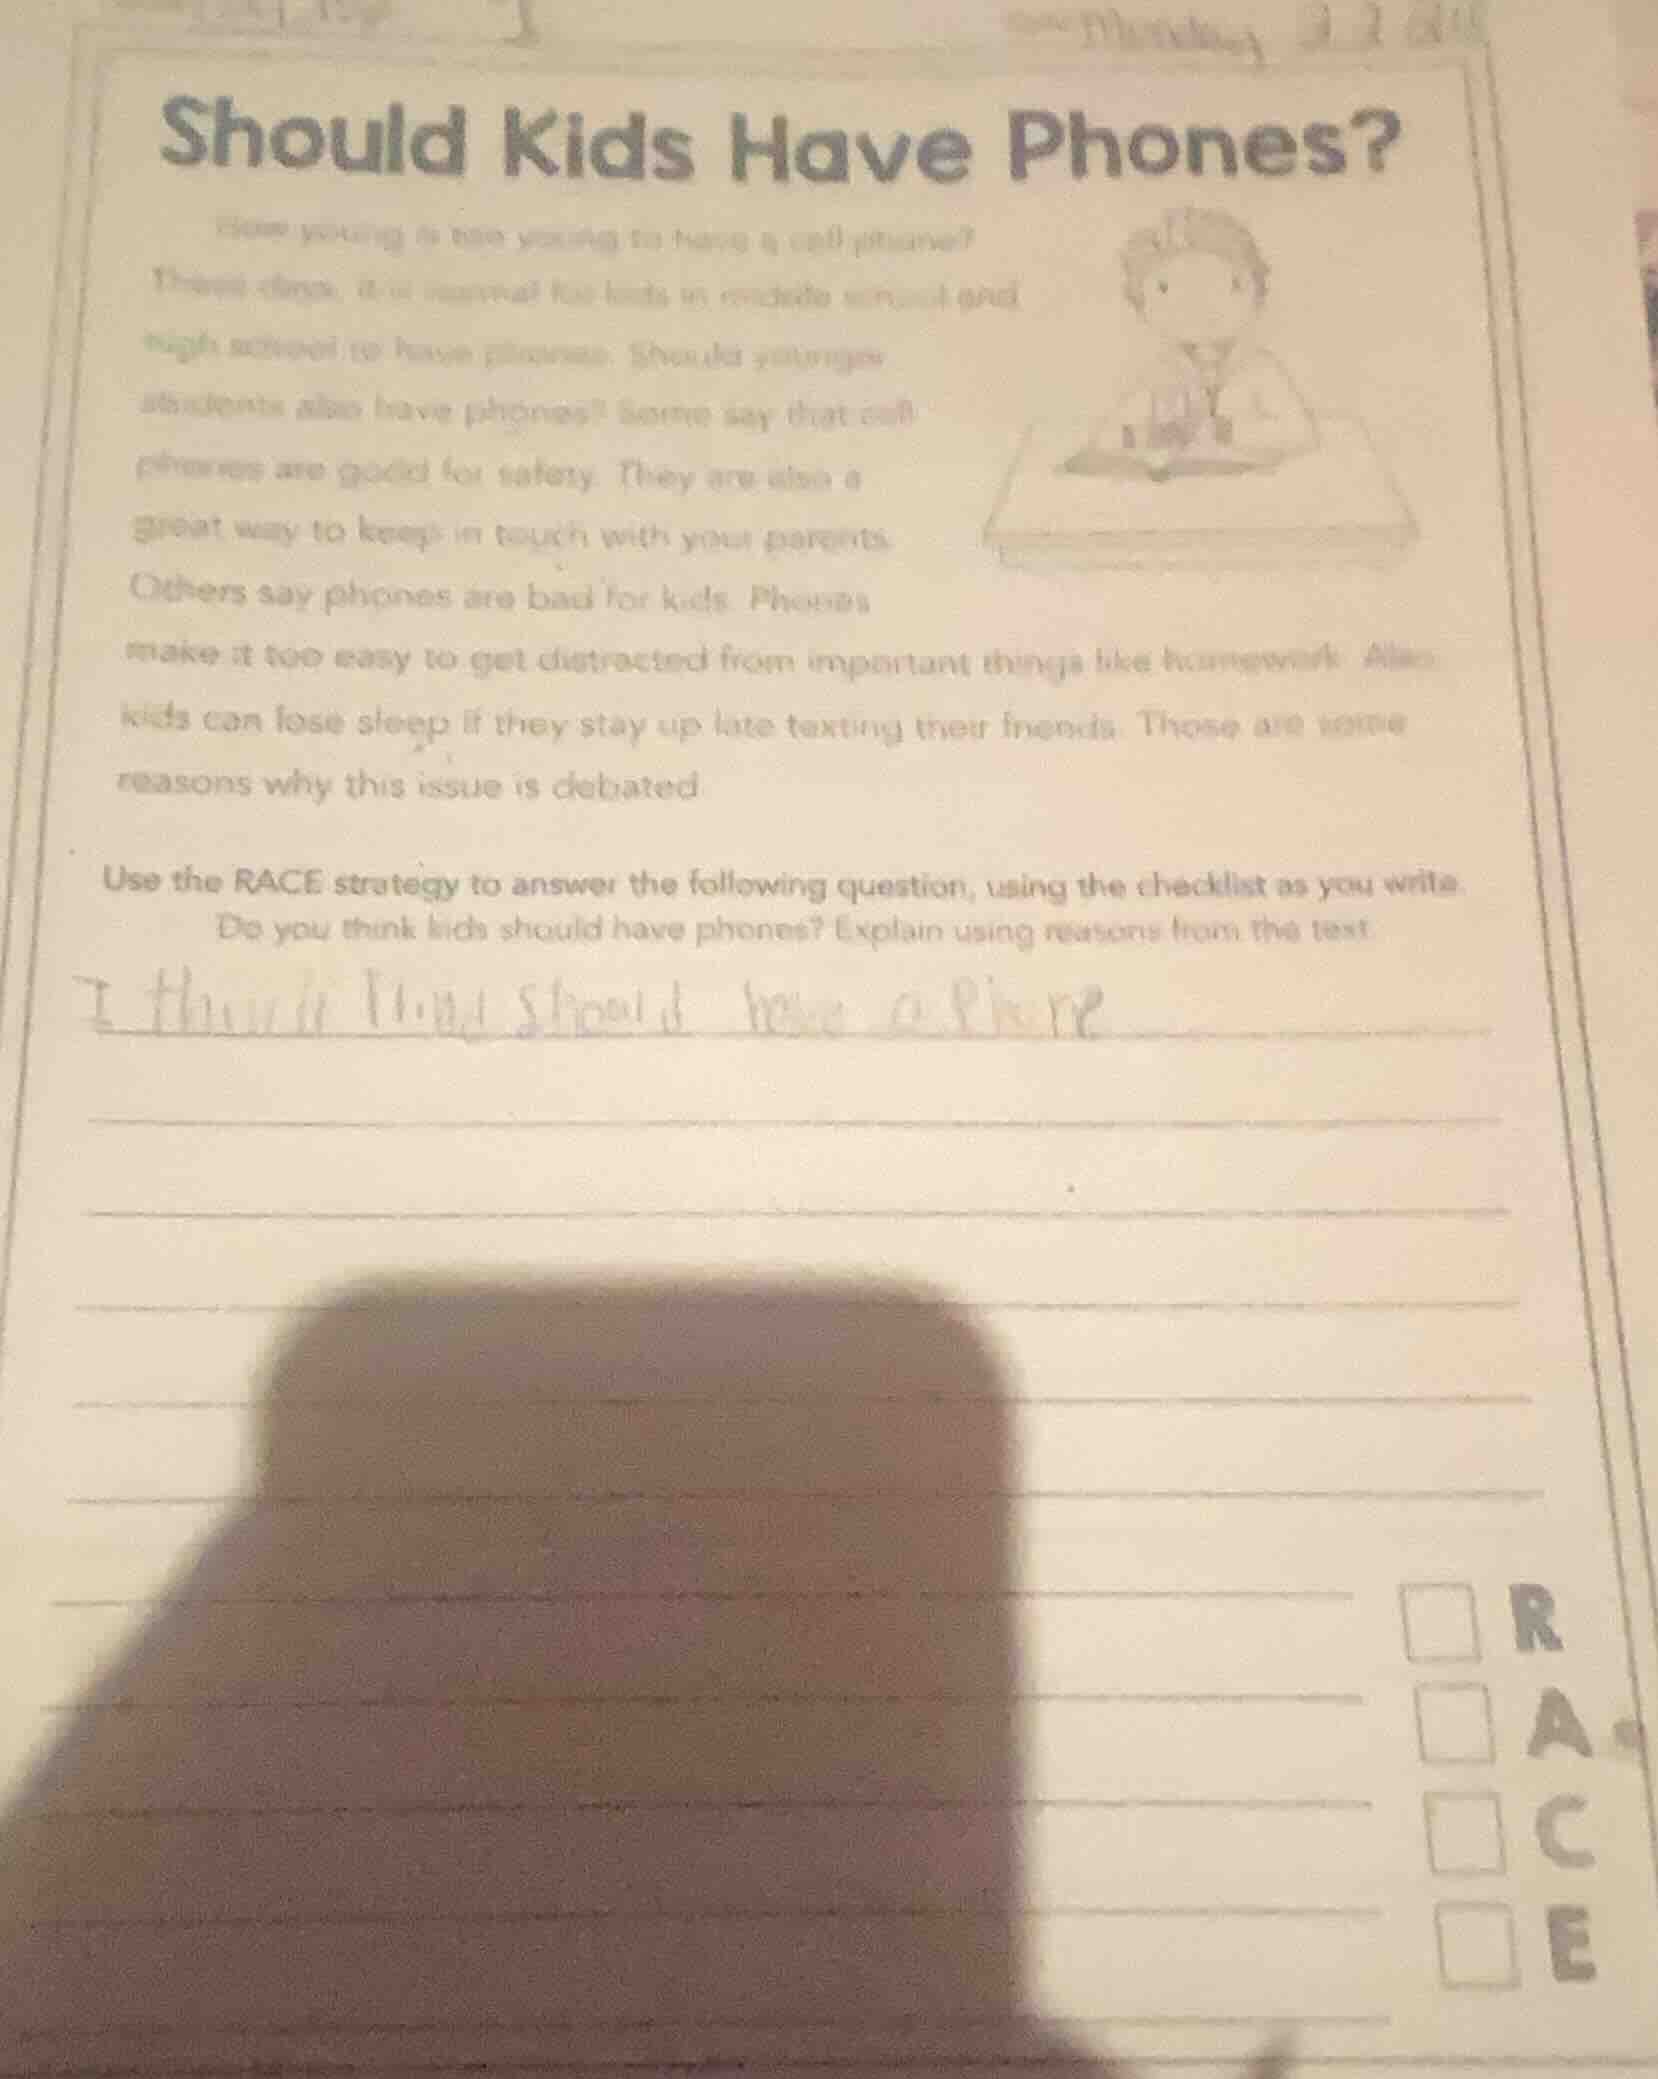 Monday
Should Kids Have Phones?
How young is too young to have a cell phone?
These days, it is normal for kids in middle school and
high school to have phones. Should younger
students also have phones? Some say that cell
phones are good for safety. They are also a
great way to keep in touch with your parents.
Others say phones are bad for kids. Phones
make it too easy to get distracted from important things like homework. Also
kids can lose sleep if they stay up late texting their friends. Those are some
reasons why this issue is debated
Use the RACE strategy to answer the following question, using the checklist as you write.
Do you think kids should have phones? Explain using reasons from the text.
I should have a Phone
R
A
C
E